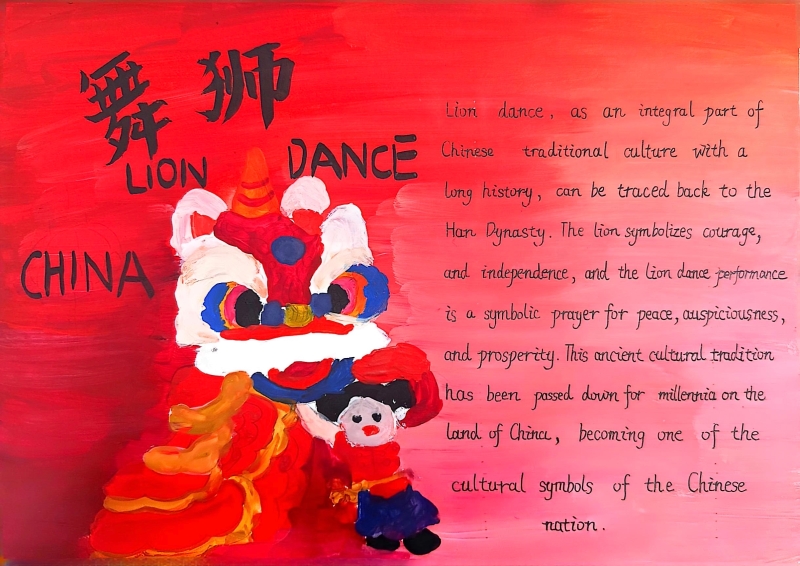 舞狮
LION DANCE
CHINA
Lion dance, as an integral part of
Chinese traditional culture with a
long history, can be traced back to the
Han Dynasty. The lion symbolizes courage,
and independence, and the lion dance performance
is a symbolic prayer for peace, auspiciousness,
and prosperity. This ancient cultural tradition
has been passed down for millennia on the
land of China, becoming one of the
cultural symbols of the Chinese
nation.